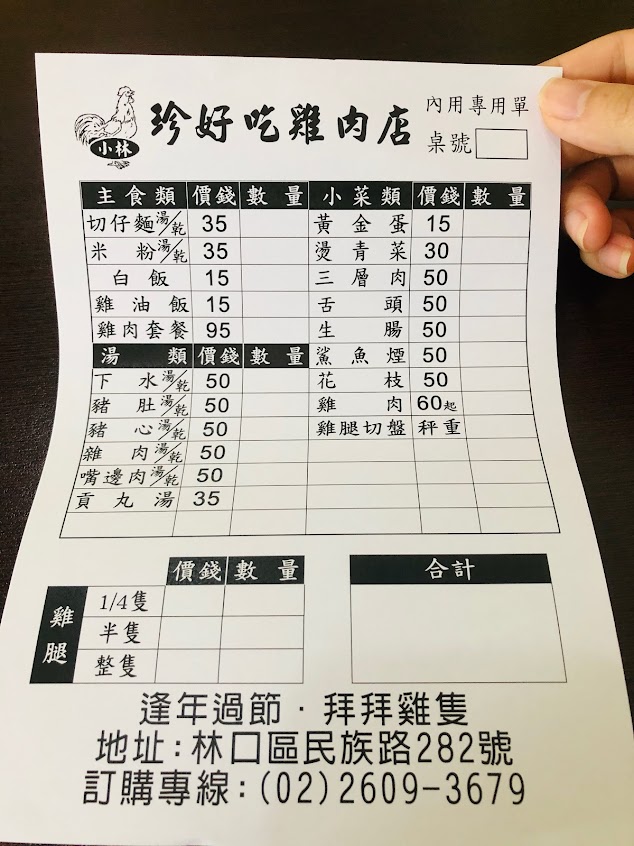 小林
珍好吃雞肉店
內用專用單
桌號
主食類 價錢 數量 小菜類 價錢 數量
切仔麵湯/乾 35 黃金蛋 15
米粉湯/乾 35 燙青菜 30
白飯 15 三層肉 50
雞油飯 15 舌頭 50
雞肉套餐 95 生腸 50
湯類 價錢 數量 鯊魚煙 50
下水湯/乾 50 花枝 50
豬肚湯/乾 50 雞肉 60起
豬心湯/乾 50 雞腿切盤 秤重
雜肉湯/乾 50
嘴邊肉湯/乾 50
貢丸湯 35
價錢 數量 合計
雞腿
1/4隻
半隻
整隻
逢年過節·拜拜雞隻
地址:林口區民族路282號
訂購專線:(02)2609-3679